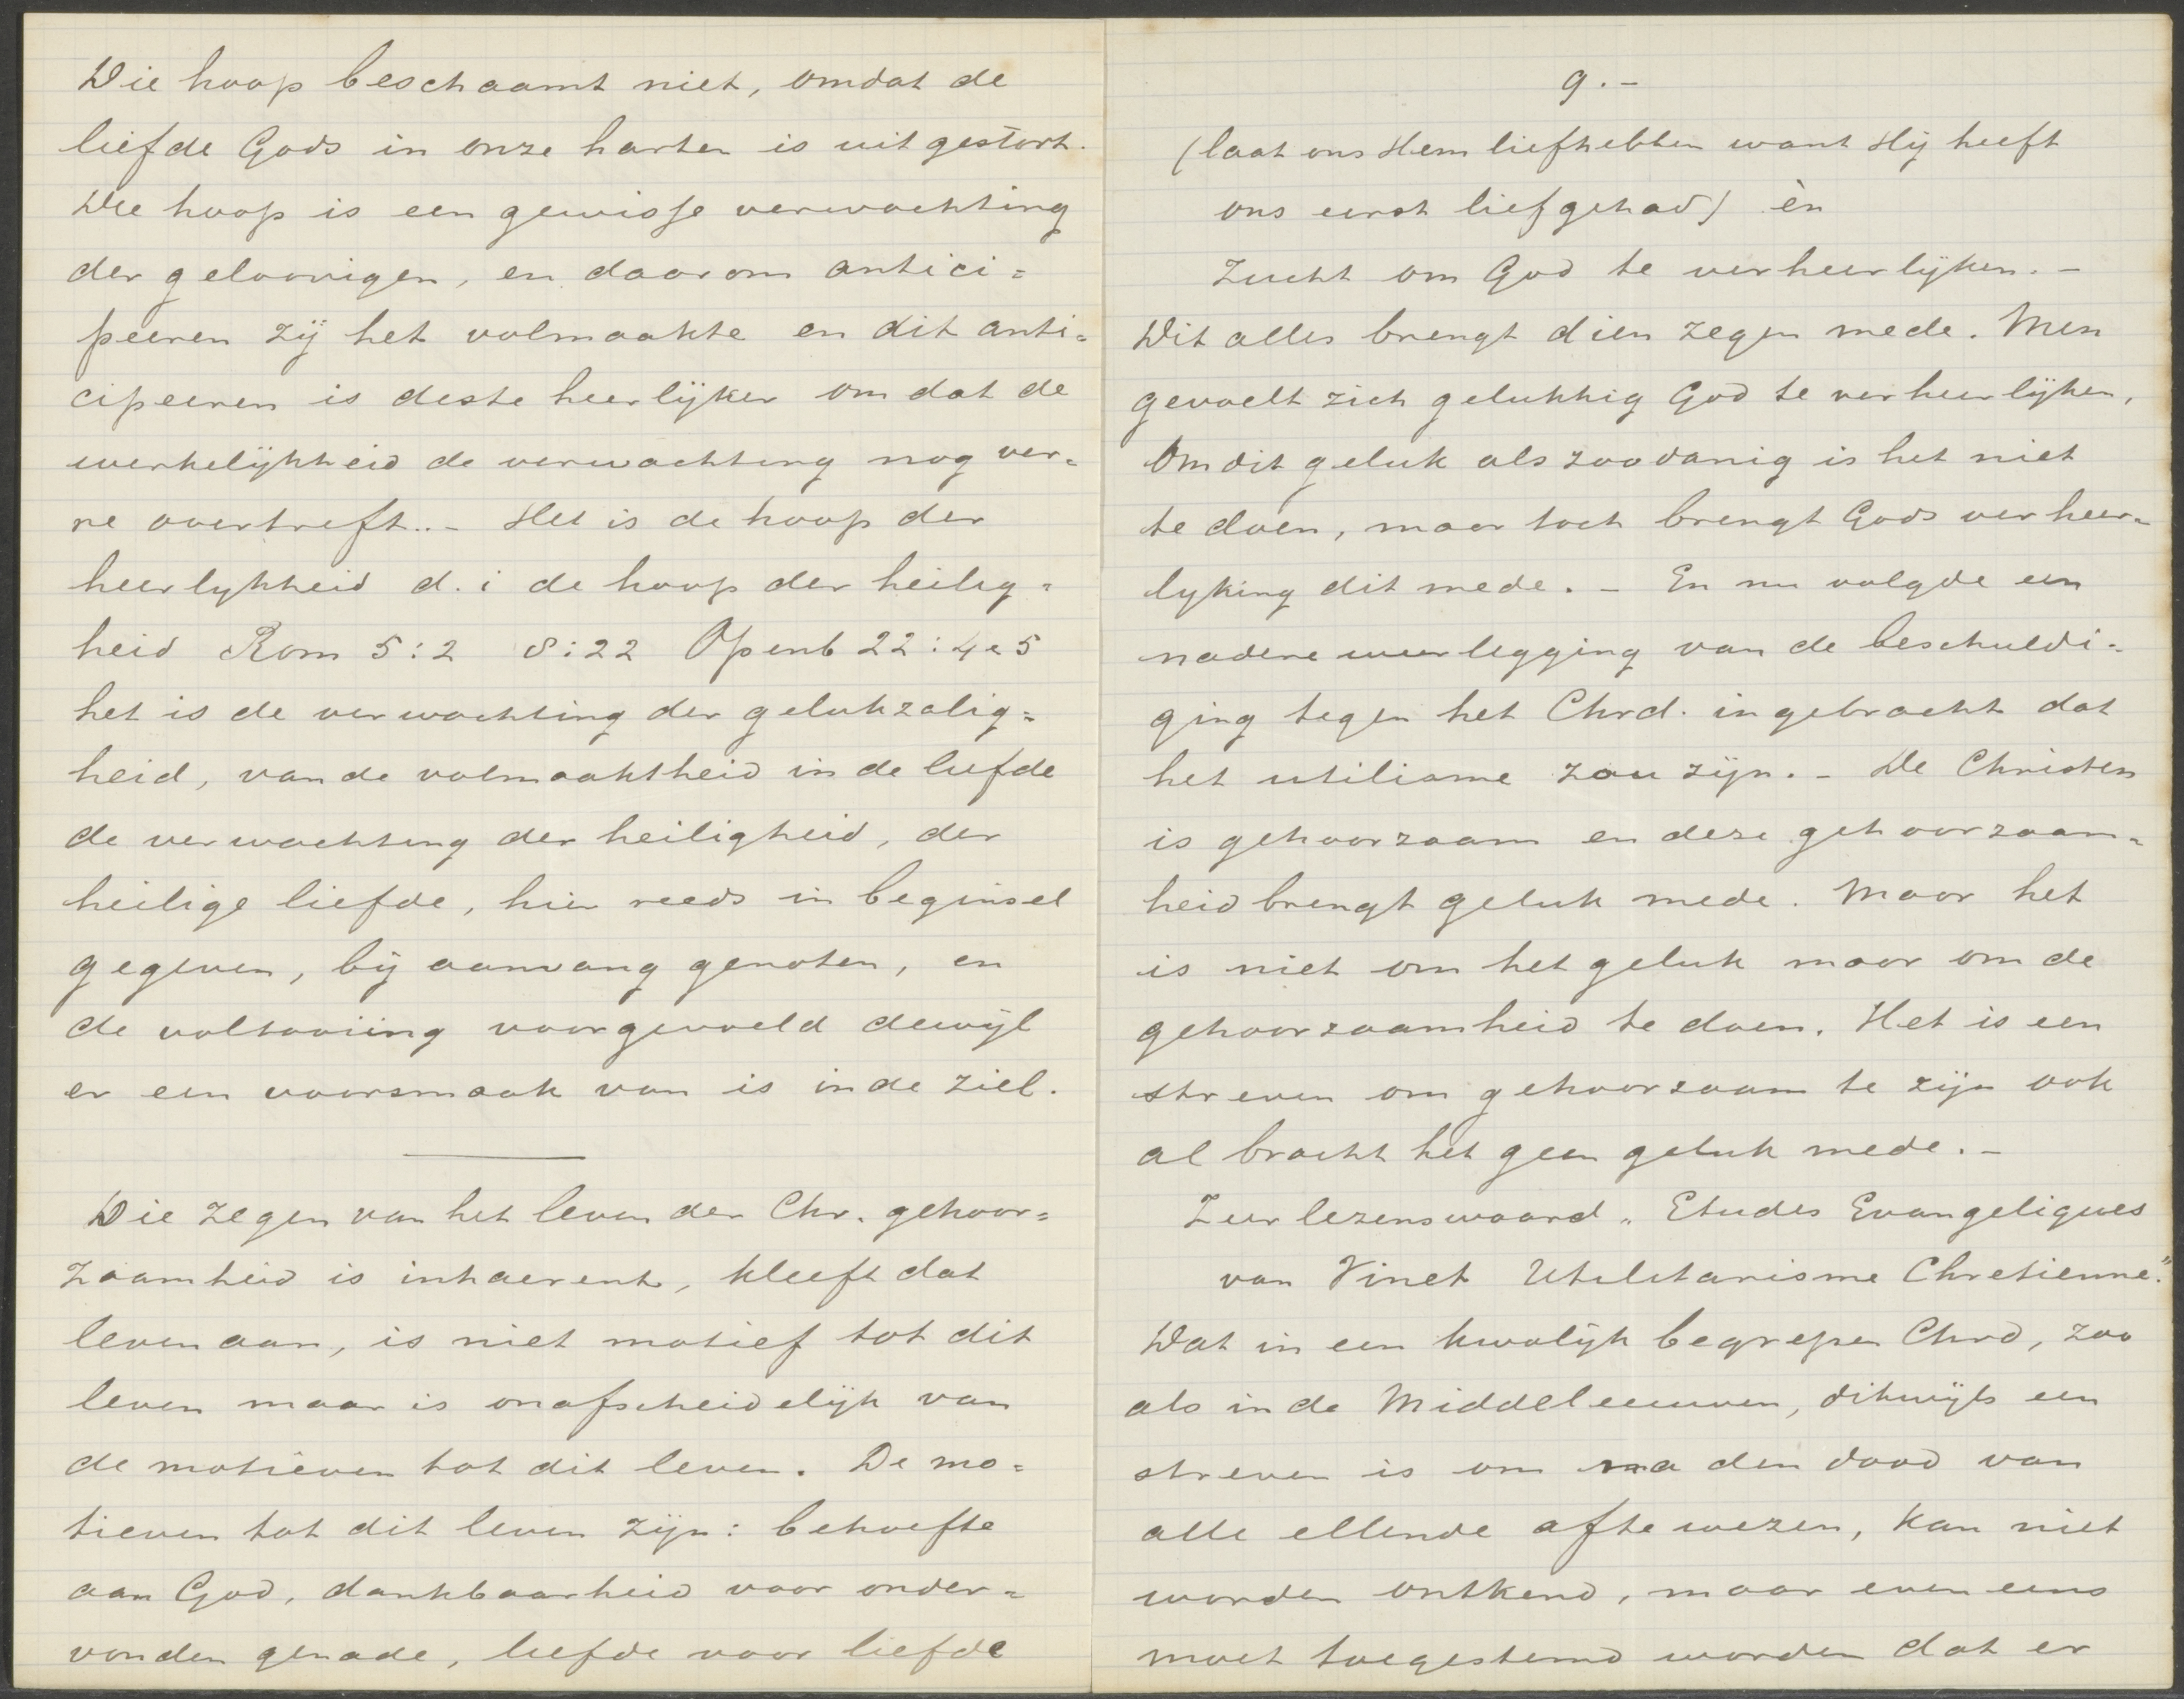 Die hoop beschaamt niet, omdat de
liefde Gods in onze harten is uitgestort.
Die hoop is een gewisse verwachting
der geloovigen, en daarom antici=
peeren zij het volmaakte en dit anti=
cipeeren is deste heerlijker omdat de
werkelijkheid de verwachting nog ver=
re overtreft.. - Het is de hoop der
heerlykheid d.i de hoop der heilig=
heid Rom 5:2 8:22 Openb 22:4 e 5
het is de verwachting der gelukzalig=
heid, van de volmaaktheid in de liefde
de verwachting der heiligheid, der
heilige liefde, hier reeds in beginsel
gegeven, bij aanvang genoten, en
de voltooiing voorgevoeld dewijl
er een voorsmaak van is in de ziel.
Die zegen van het leven der Chr. gehoor=
zaamheid is inhaerent, kleeft dat
leven aan, is niet motief tot dit
leven maar is onafscheidelijk van
de motieven tot dit leven. De mo=
tieven tot dit leven zijn: behoefte
aan God, dankbaarheid voor onder=
vonden genade, liefde voor liefde
9.-
(laat ons Hem liefhebben want Hij heeft
ons eerst liefgehad) èn
Zucht om God te verheerlijken. -
Dit alles brengt dien zegen mede. Men
gevoelt zich gelukkig God te verheerlijken,
Om dit geluk als zoodanig is het niet
te doen, maar toch brengt Gods verheer=
lyking dit mede. - En nu volgde een
nadere weerlegging van de beschuldi=
ging tegen het Chrd. ingebracht dat
het utilisme zou zijn. - De Christen
is gehoorzaam en deze gehoorzaam=
heid brengt geluk mede. Maar het
is niet om het geluk maar om de
gehoorzaamheid te doen. Het is een
streven om gehoorzaam te zijn ook
al bracht het geen geluk mede. -
Zeer lezenswaard „Etudes Evangeliques
van Vinet Utilitarisme Chretienne."
Dat in een kwalijk begrepen Chrd, zoo
als in de Middeleeuwen, dikwijls een
streven is om na den dood van
alle ellende af te wezen, kan niet
worden ontkend, maar even eens
moet toegestemd worden dat er